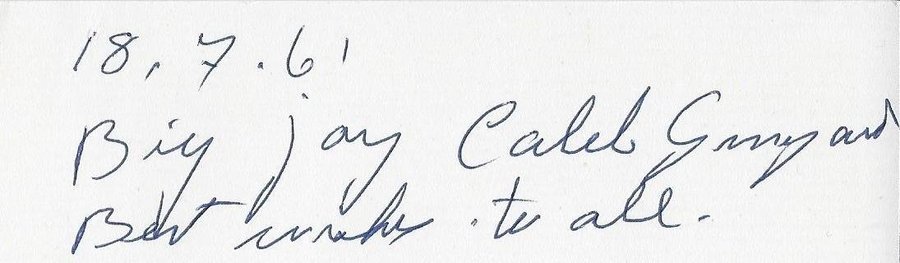 18.7.61
Big joy Caleb Gunyard
Best wishes to all.